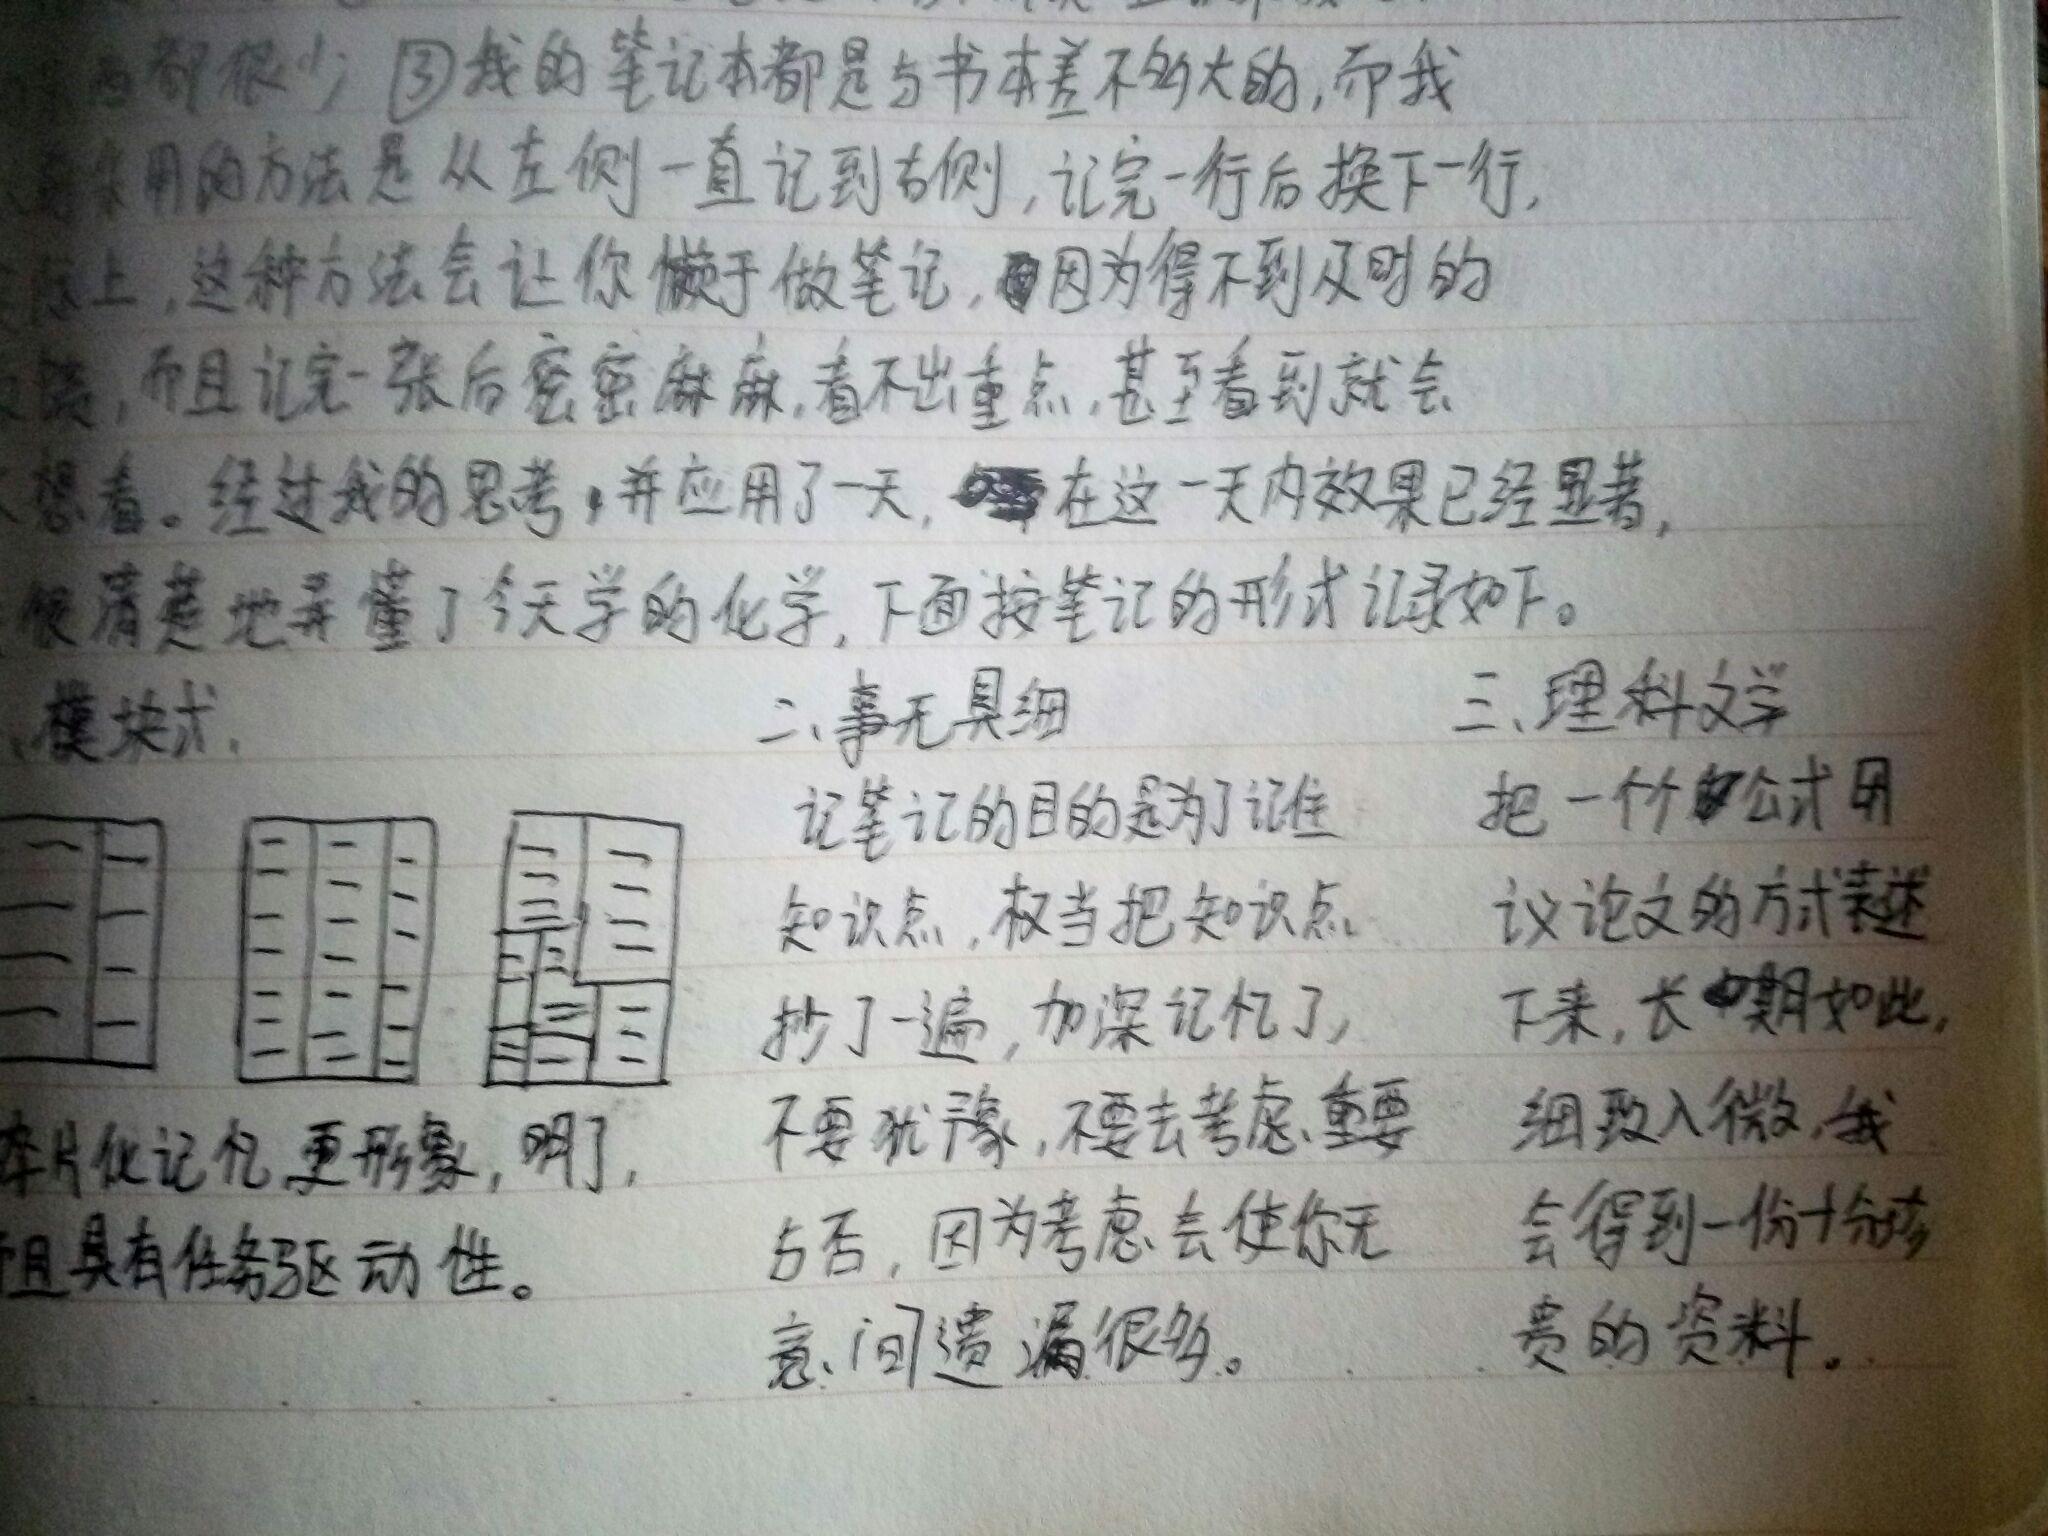 都很少；③我的笔记本都是与书本差不多大的，而我
采用的方法是从左侧一直记到右侧，记完一行后换下一行，
上，这种方法会让你懒于做笔记，因为得不到及时的
，而且记完一张后密密麻麻，看不出重点，甚至看到就会
想看。经过我的思考，并应用了一天，在这一天内效果已经显著，
很清楚地弄懂了今天学的化学，下面按笔记的形式记录如下。
、模块式，
碎片化记忆更形象，明了，
而且具有任务驱动性。
二、事无具细
记笔记的目的是为了记住
知识点，权当把知识点
抄了一遍，加深记忆了，
不要犹豫，不要去考虑重要
与否，因为考虑会使你无
意间遗漏很多。
三、理科文学
把一个个公式用
议论文的方式表述
下来，长期如此，
细致入微，我
会得到一份十分珍
贵的资料。